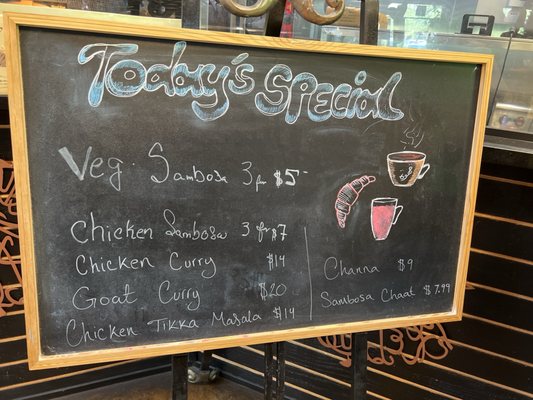 Today's Special
Veg. Sambosa 3 for $5-
Chicken Sambosa 3 for $7
Chicken Curry $14
Goat Curry $20
Chicken Tikka Masala $14
Channa $9
Sambosa Chaat $7.99